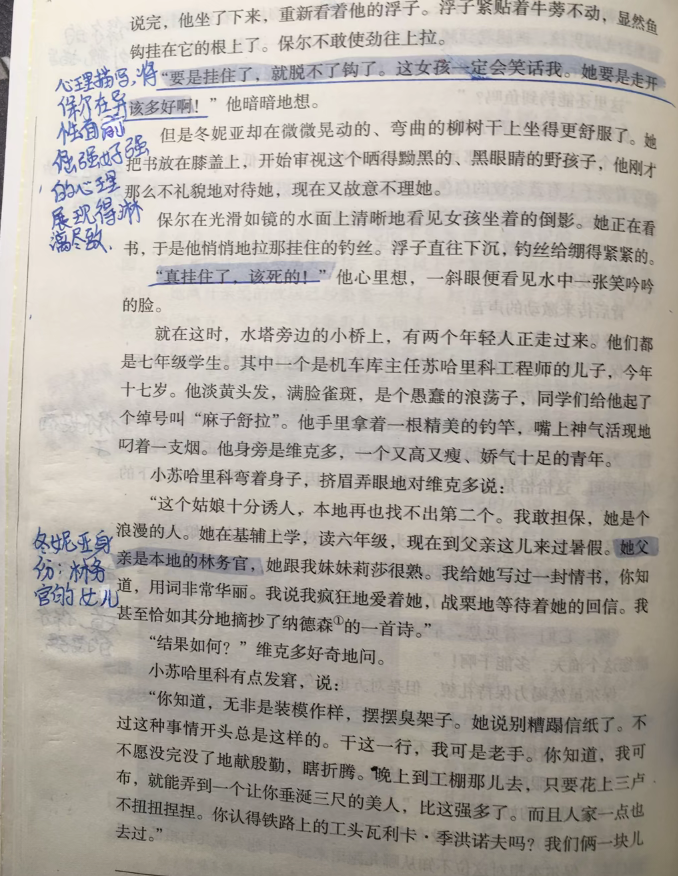 说完，他坐了下来，重新看着他的浮子。浮子紧贴着牛蒡不动，显然鱼
钩挂在它的根上了。保尔不敢使劲往上拉。
“要是挂住了，就脱不了钩了。这女孩一定会笑话我。她要是走开
该多好啊！”他暗暗地想。
但是冬妮亚却在微微晃动的、弯曲的柳树干上坐得更舒服了。她
把书放在膝盖上，开始审视这个晒得黝黑的、黑眼睛的野孩子，他刚才
那么不礼貌地对待她，现在又故意不理她。
保尔在光滑如镜的水面上清晰地看见女孩坐着的倒影。她正在看
书，于是他悄悄地拉那挂住的钓丝。浮子直往下沉，钓丝给绷得紧紧的。
“真挂住了，该死的！”他心里想，一斜眼便看见水中一张笑吟吟
的脸。
就在这时，水塔旁边的小桥上，有两个年轻人正走过来。他们都
是七年级学生。其中一个是机车库主任苏哈里科工程师的儿子，今年
十七岁。他淡黄头发，满脸雀斑，是个愚蠢的浪荡子，同学们给他起了
个绰号叫“麻子舒拉”。他手里拿着一根精美的钓竿，嘴上神气活现地
叼着一支烟。他身旁是维克多，一个又高又瘦、娇气十足的青年。
小苏哈里科弯着身子，挤眉弄眼地对维克多说：
“这个姑娘十分诱人，本地再也找不出第二个。我敢担保，她是个
浪漫的人。她在基辅上学，读六年级，现在到父亲这儿来过暑假。她父
亲是本地的林务官，她跟我妹妹莉莎很熟。我给她写过一封情书，你知
道，用词非常华丽。我说我疯狂地爱着她，战栗地等待着她的回信。我
甚至恰如其分地摘抄了纳德森①的一首诗。”
“结果如何？”维克多好奇地问。
小苏哈里科有点发窘，说：
“你知道，无非是装模作样，摆摆臭架子。她说别糟蹋信纸了。不
过这种事情开头总是这样的。干这一行，我可是老手。你知道，我可
不愿没完没了地献殷勤，瞎折腾。晚上到工棚那儿去，只要花上三卢
布，就能弄到一个让你垂涎三尺的美人，比这强多了。而且人家一点也
不扭扭捏捏。你认得铁路上的工头瓦利卡·季洪诺夫吗？我们俩一块儿
去过。”
心理描写，将
保尔在异
性面前
倔强好强
的心理
展现得淋
漓尽致.
冬妮亚身
份：林务
官的女儿